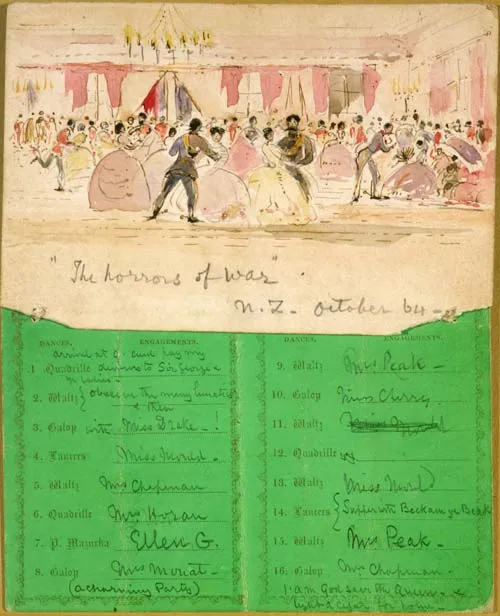 "The horrors of war".
N.Z. - October 64 -
DANCES. ENGAGEMENTS.
arrived at 9 and pay my
1 Quadrille devoirs to Sir George &
2. Waltz { observe the many
& then
3. Galop with Miss Drake - !
4. Lancers Miss Mould -
5. Waltz Mrs Chapman
6. Quadrille Mrs Horan
7. P. Mazurka Ellen G.
8. Galop Mrs Moriat -
(a charming Party)
DANCES. ENGAGEMENTS.
9. Waltz Mrs Peak -
10. Galop Miss Curry
11. Waltz
12. Quadrille
13. Waltz Miss Mould
14. Lancers { Supper with
15. Waltz Mrs Peak -
16. Galop Mrs Chapman
1. am God save the Queen - &
light a cigar for home